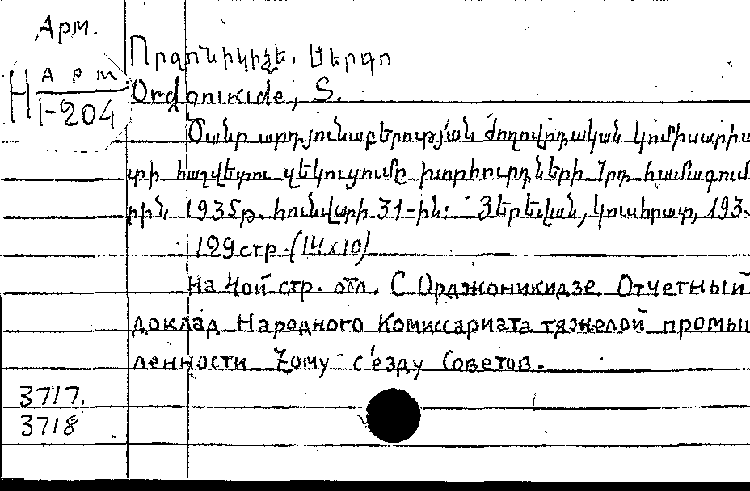 Арм.
Н Арм
1-204
Օրջոնիկիձե, Սերգո
Ordonikide, S.
Ծանր արդյունաբերության ժողովրդական կոմիսարիա
տի հաշվետու զեկուցումը խորհուրդների 7րդ համագում
րին, 1935թ. հունվարի 31-ին: Յերեվան, կուսհրատ, 193
129 стр. (14x10)
На 4ой стр. огл. С Орджоникидзе Отчетный
доклад Народного Комиссариата тяжелой промыш
ленности 7ому съезду Советов.
3717.
3718